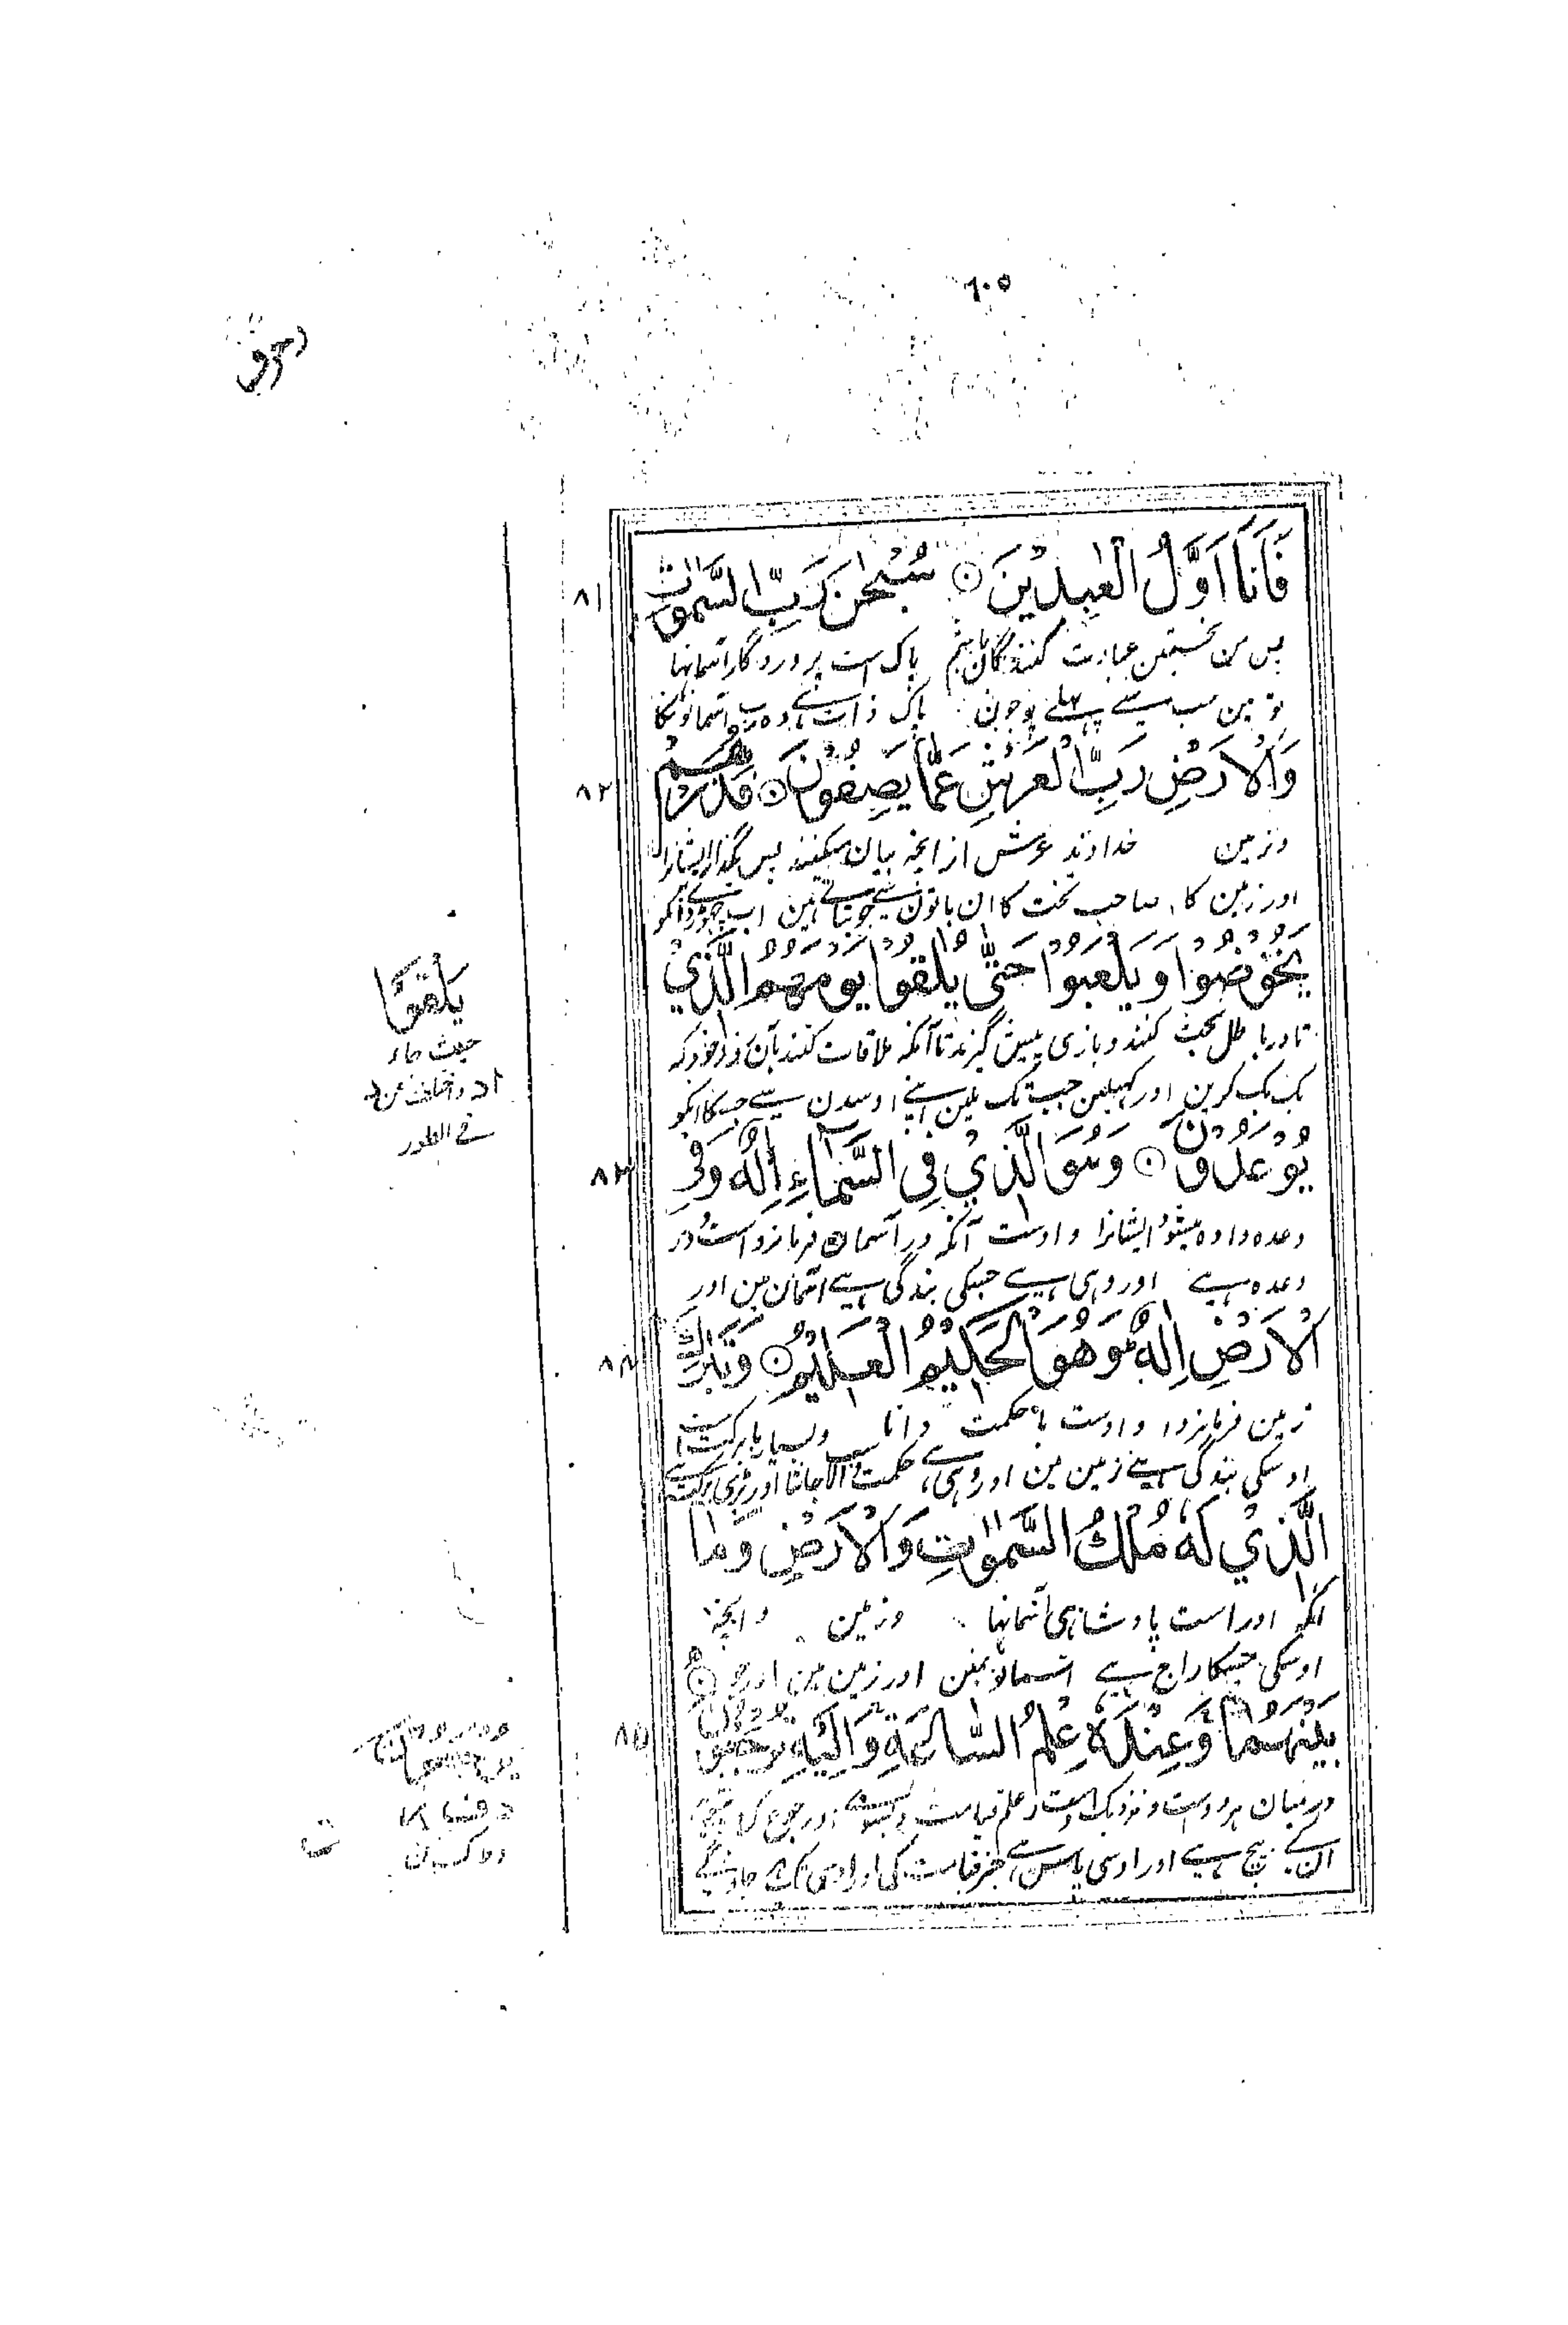 ٦٠٥
فَأَنَا۠ أَوَّلُ الْعٰبِدِيْنَ ۝ سُبْحٰنَ رَبِّ السَّمٰوٰتِ
٨١
پس من نخستین عبادت کنندگان باشم پاک است پروردگار آسمانها
تو مین سب سے پہلے پوجون پاک ذات ہے وہ رب آسمانونکا
وَالْاَرْضِ رَبِّ الْعَرْشِ عَمَّا يَصِفُوْنَ ۝ فَذَرْهُمْ
٨٢
وزمین خداوند عرش از انچه بیان میکنند پس بگذار ایشانرا
اور زمین کا صاحب تخت کا ان باتون سے جو بتاتے ہین اب چھوڑ دے انکو
يَخُوْضُوْا وَيَلْعَبُوْا حَتّٰى يُلٰقُوْا يَوْمَهُمُ الَّذِيْ
تا در باطل بحث کنند و بازی پیش گیرند تا آنکه ملاقات کنند بآن روز خود که
بک بک کرین اور کھیلین جب تک ملین اپنے اوسدن سے جسکا انکو
يُوْعَدُوْنَ ۝ وَهُوَ الَّذِيْ فِي السَّمَآءِ اِلٰهٌ وَّفِي
٨٣
وعده داده میشود ایشانرا و اوست آنکه در آسمان فرمانرواست و در
وعدہ ہے اور وہی ہے جسکی بندگی ہے آسمان مین اور
الْاَرْضِ اِلٰهٌ ؕ وَهُوَ الْحَكِيْمُ الْعَلِيْمُ ۝ وَتَبٰرَكَ
٨٤
زمین فرمانروا و اوست با حکمت دانا و بسیار بابرکت است
اوسکی بندگی ہے زمین مین اور وہی ہے حکمت والا جانتا اور بڑی برکت ہے
الَّذِيْ لَهٗ مُلْكُ السَّمٰوٰتِ وَالْاَرْضِ وَمَا
آنکه اوراست پادشاهی آسمانها وزمین و انچه
اوسکی جسکا راج ہے آسمانونمین اور زمین مین اور جو
بَيْنَهُمَا ۚ وَعِنْدَهٗ عِلْمُ السَّاعَةِ ۚ وَاِلَيْهِ تُرْجَعُوْنَ ۝
٨٥
در میان هر دو است و نزدیک اوست علم قیامت و بسوی او رجوع کرده
انکے بیچ ہے اور اوسی پاس ہے خبر قیامت کی اور اوسی تک جاؤگے
يلقوا
حيث جاء
في الطور